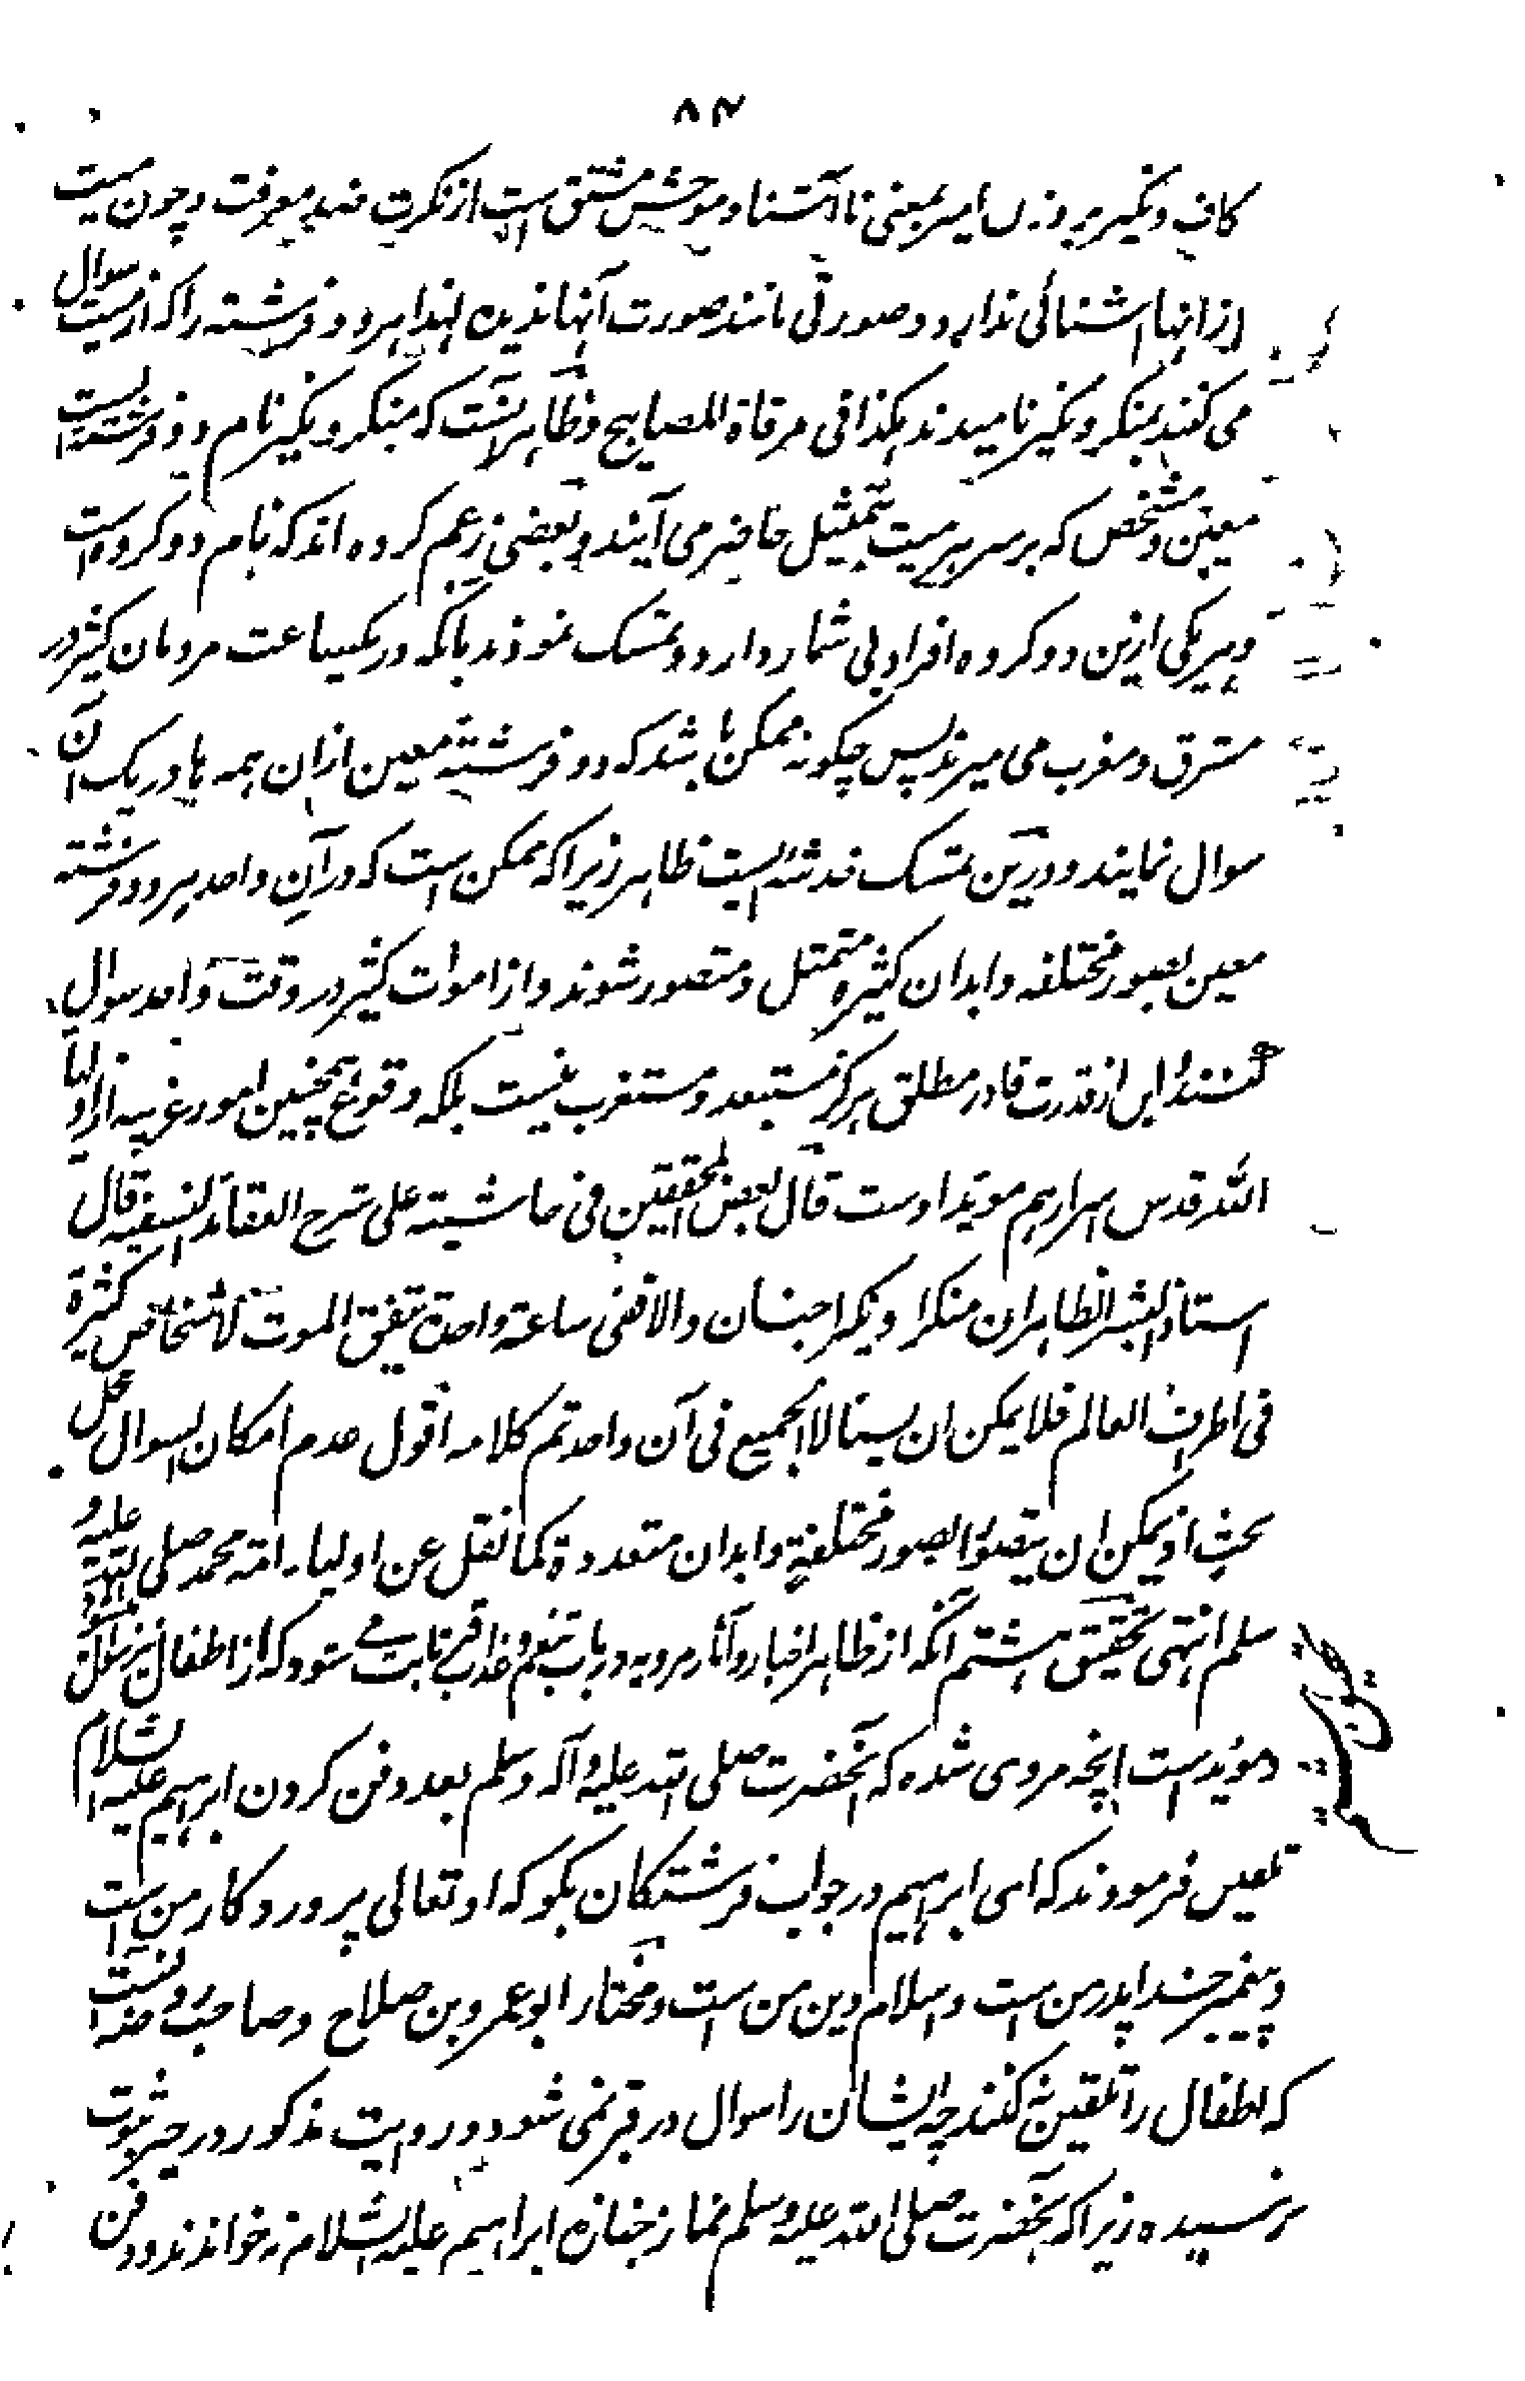 ۸۴
کاف و نکیر بر وزن امیر بمعنی نا آشنا و موحش مشتق است از نکرت ضد معرفت و چون میت
از انها اشنائی ندارد و صورتی مانند صورت آنها ندیده لهذا هر دو فرشته را که از میت سوال
می کنند منکر و نکیر نامیدند هکذا فی مرقاة المصابیح و ظاهر آنست که منکر و نکیر نام دو فرشته است
معین و مشخص که بر سر هر میت بتمثیل حاضر می آیند و بعضی زعم کرده اند که نام دو کروه است
و هر یکی ازین دو کروه افراد بی شمار دارد و تمسک نمودند بانکه در یکساعت مردمان کثیر در
مشرق و مغرب می میرند پس چکونه ممکن باشد که دو فرشته معین ازان همه ها در یک آن
سوال نمایند و درین تمسک خدشه ایست ظاهر زیرا که ممکن است که در آن واحد هر دو فرشته
معین بصور مختلفه و ابدان کثیره متمثل و متصور شوند و از اموات کثیر در وقت واحد سوال
کنند این از قدرت قادر مطلق هرکز مستبعد و مستغرب نیست بلکه وقوع همچنین امور غریبه از اولیا
الله قدس اسرارهم موید اوست قال بعض المحققین فی حاشیته علی شرح العقائد النسفیه قال
استاذ البشر الظاهر ان منکرا و نکیرا جنسان والا ففی ساعة واحدة یتفق الموت لاشخاص کثیرة
فی اطراف العالم فلا یمکن ان یسئالا الجمیع فی آن واحد تم کلامه اقول عدم امکان السوال محل
بحث اذ یمکن ان یتصورا بصور مختلفة و ابدان متعددة کما نقل عن اولیاء امة محمد صلی الله علیه و
سلم انتهی تحقیق هشتم آنکه از ظاهر اخبار و آثار مرویه در باب تنعیم و عذاب قبر ثابت می شود که از اطفال نیز سوال
و موید است انچه مروی شده که آنحضرت صلی الله علیه و آله وسلم بعد دفن کردن ابراهیم علیه السلام
تلقین فرمودند که ای ابراهیم در جواب فرشتکان بکو که او تعالی پروردکار من است
و پیغمبر خدا پدر من است و اسلام دین من است و مختار ابو عمرو بن صلاح و صاحب روضه آنست
که اطفال را تلقین نه کنند چه ایشان را سوال در قبر نمی شود و روایت مذکور در حیز ثبوت
نرسیده زیرا که آنحضرت صلی الله علیه وسلم نماز جنازه ابراهیم علیه السلام نه خواندند و دفن